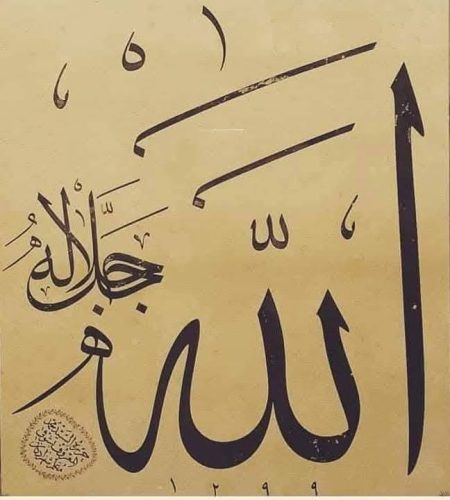 الله
جل جلاله
١٢٩٩